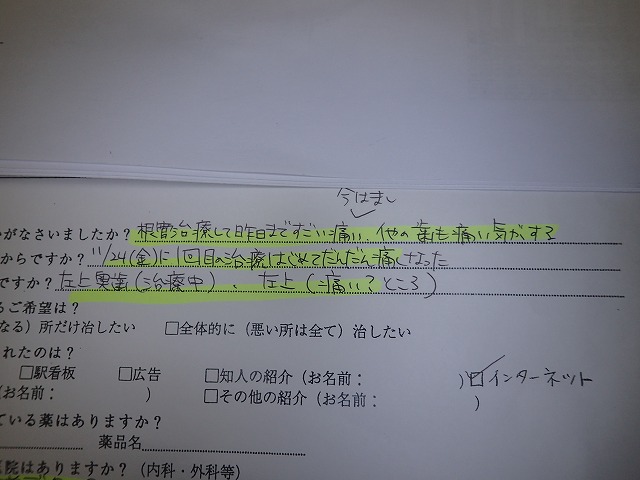 今はまし
がなさいましたか？根管治療して昨日まですごい痛い、他の歯も痛い気がする
からですか？11/24(金)に1回目の治療はじめてだんだん痛くなった
ですか？左上奥歯(治療中)、左上(痛い？ところ)
るご希望は？
なる）所だけ治したい □全体的に（悪い所は全て）治したい
れたのは？
□駅看板 □広告 □知人の紹介（お名前： ）☑インターネット
（お名前： ） □その他の紹介（お名前： ）
ている薬はありますか？
薬品名
医院はありますか？（内科・外科等）